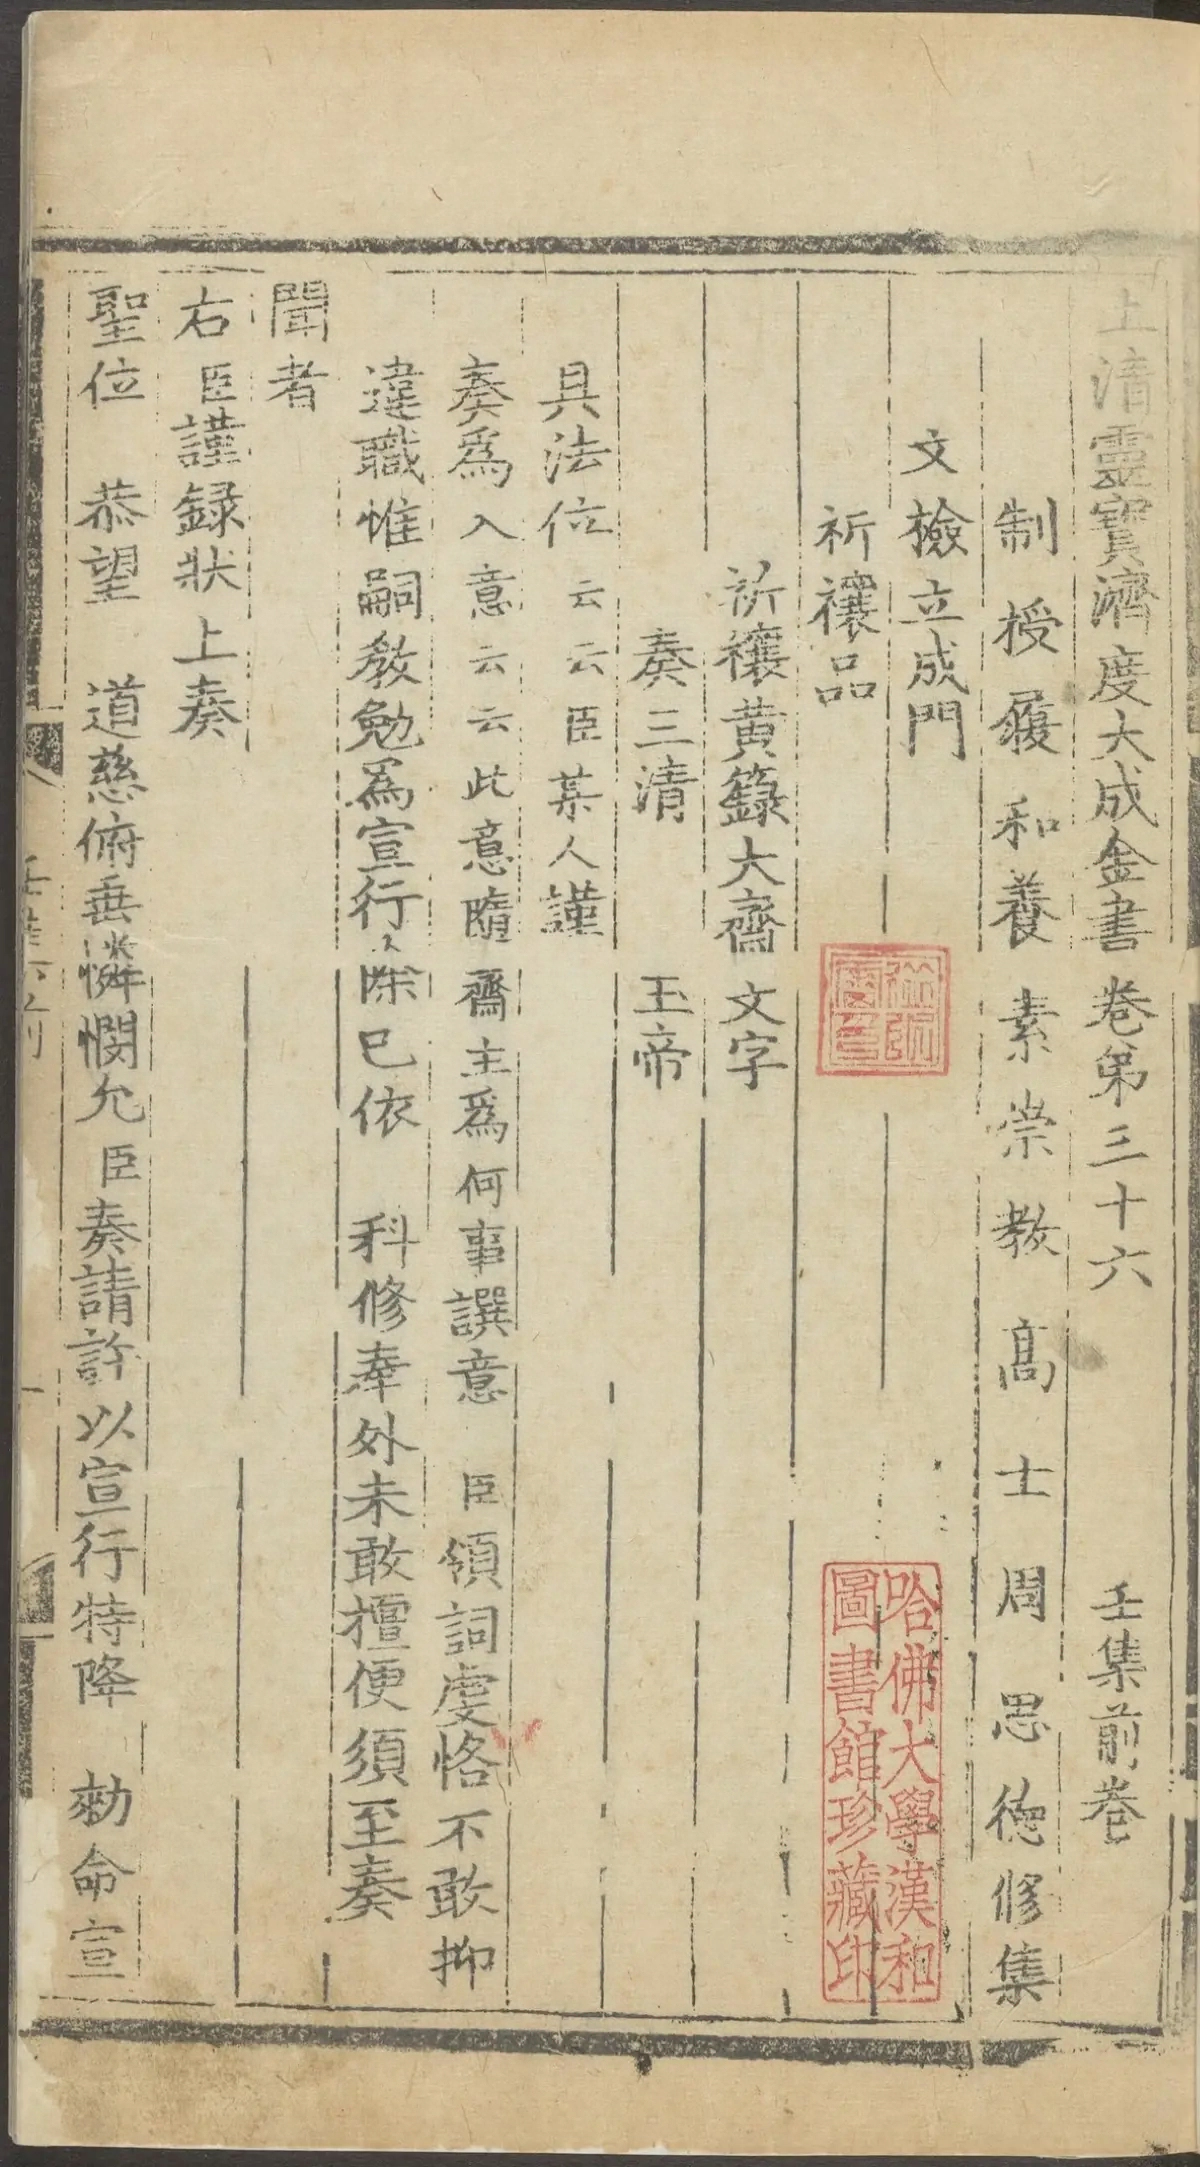 上清靈寳濟度大成金書卷第三十六 壬集前卷
制授履和養素崇教高士周思德修集
文檢立成門
祈禳品
祈禳黄籙大齋文字
奏三清 玉帝
具法位云云臣某人謹
奏爲入意云云此意隨齋主爲何事譔意 臣領詞虔恪不敢抑
違職惟嗣教勉爲宣行除已依 科修奉外未敢擅便須至奏
聞者
右臣謹録狀上奏
聖位 恭望 道慈俯垂憐憫允臣奏請許以宣行特降 勑命宣
哈佛大學漢和
圖書館珍藏印